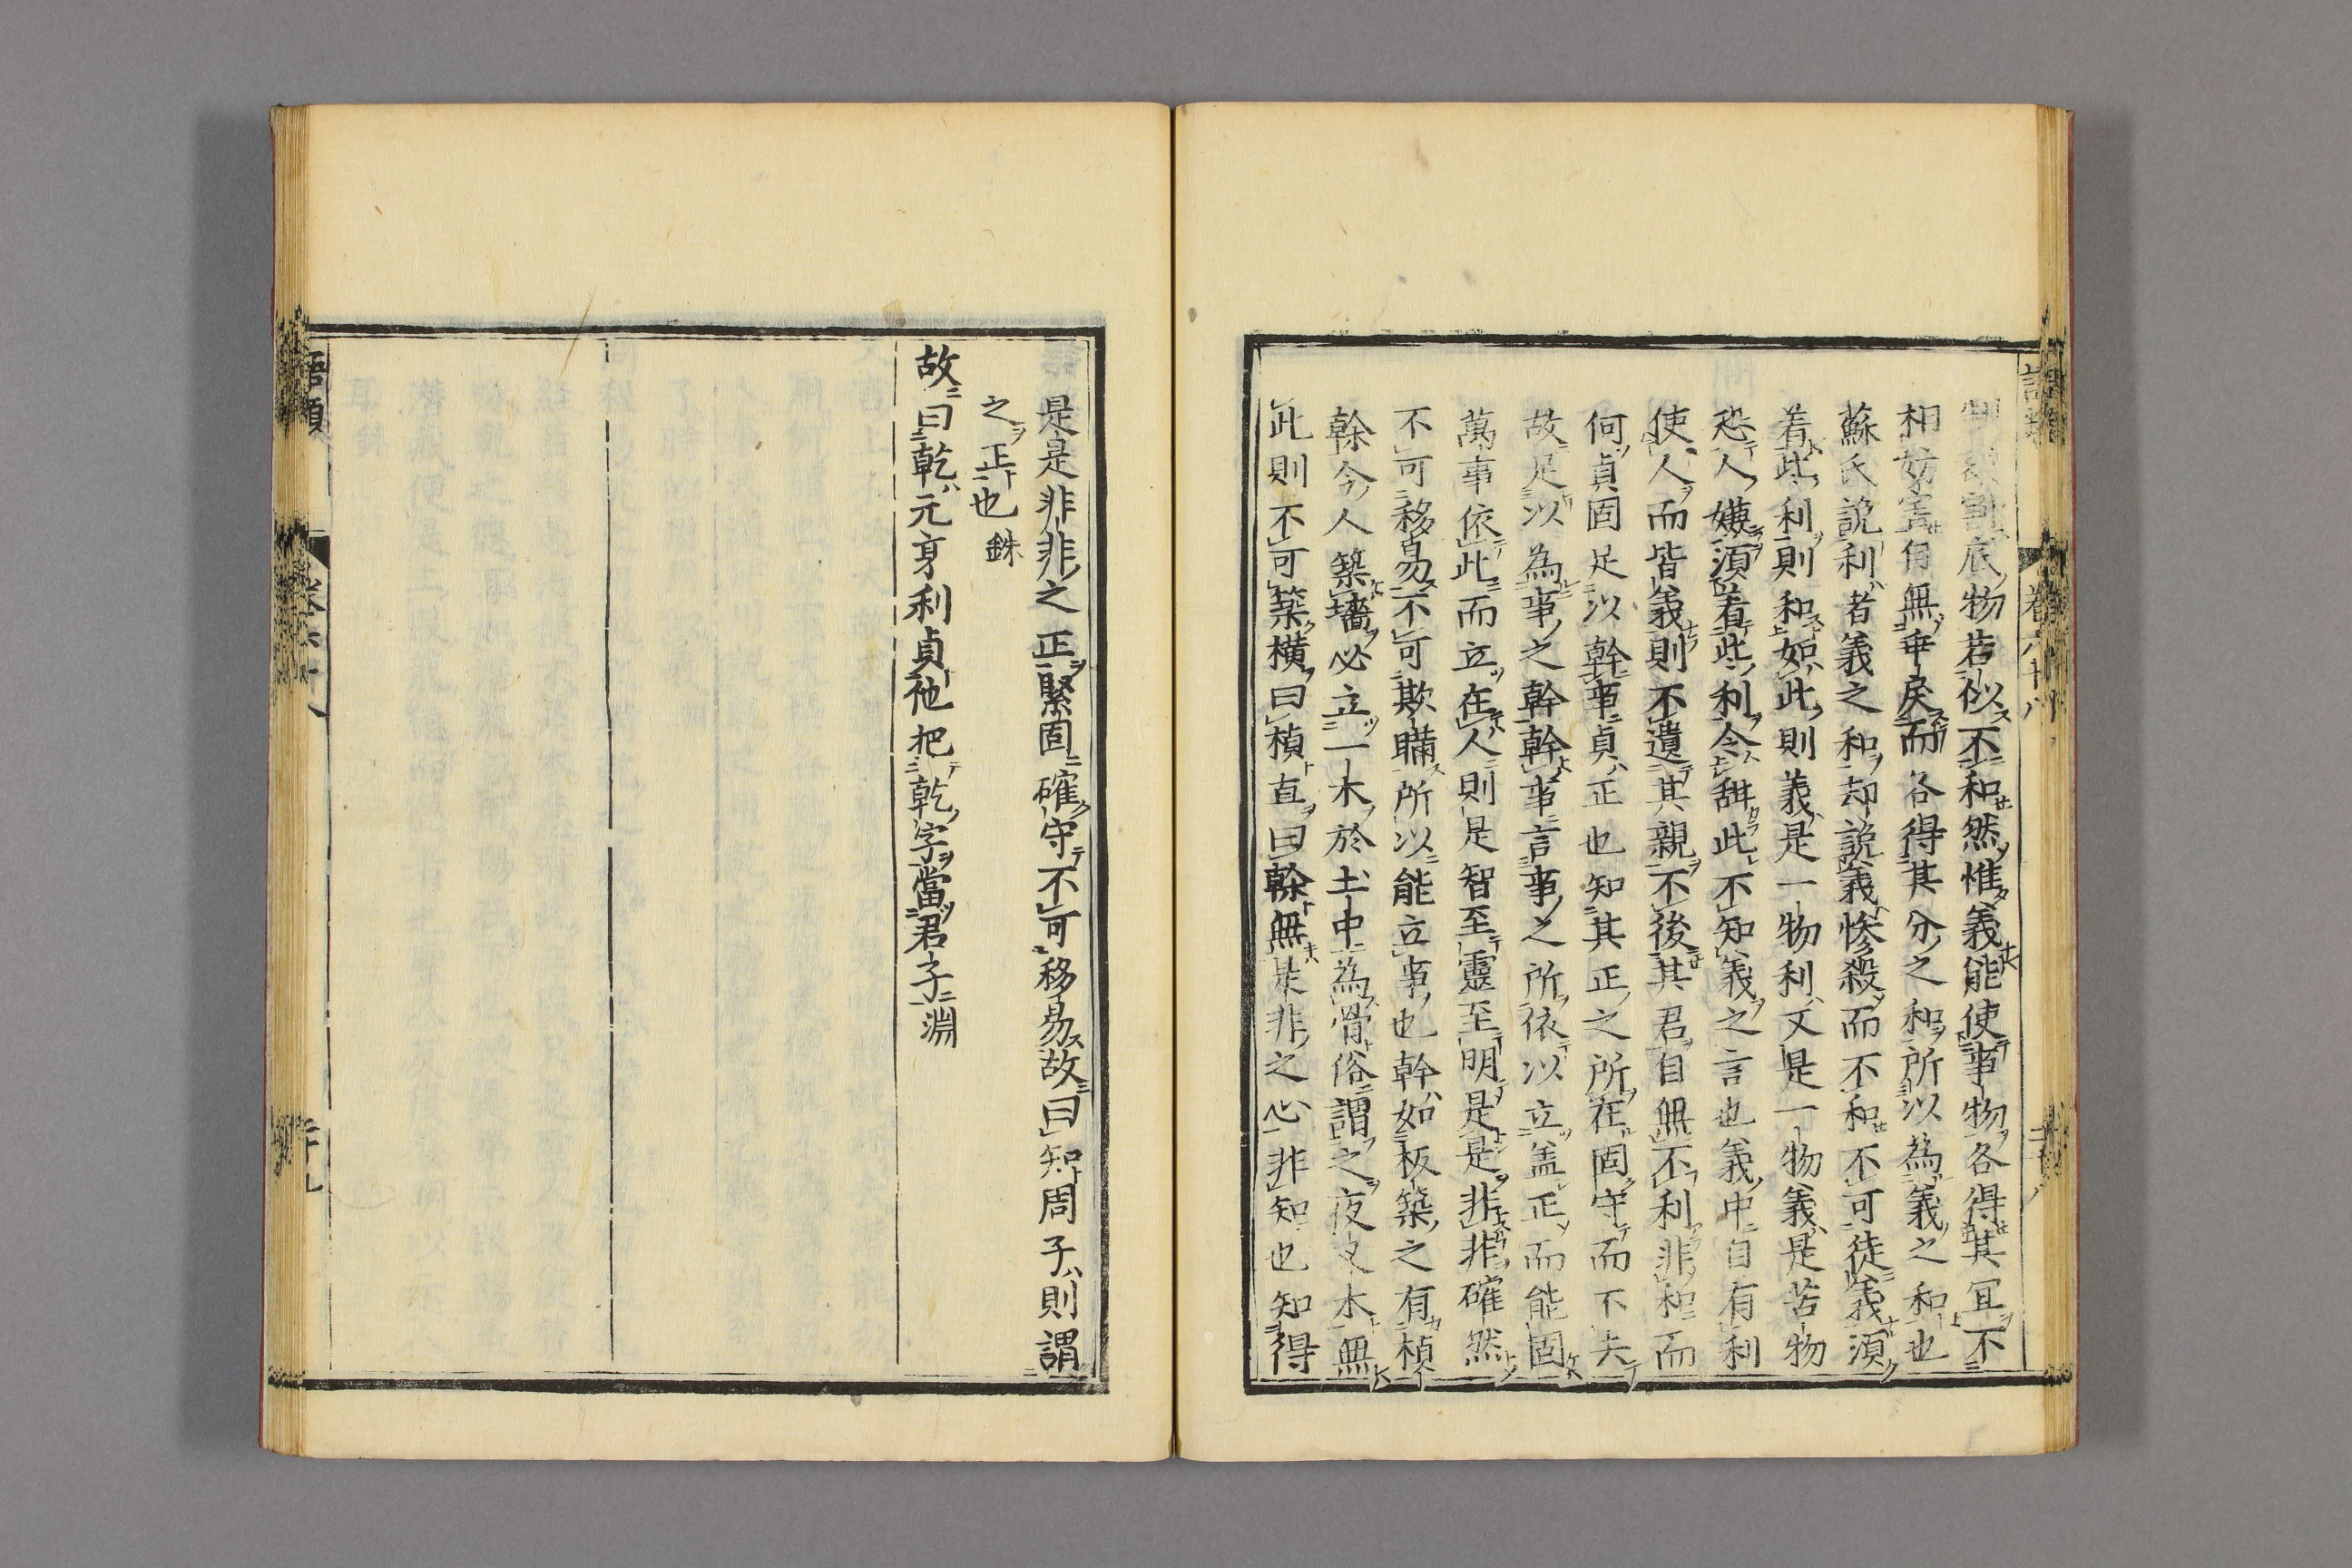 制裁割底物若似不和然惟義能使事物各得其冝不
相妨害自無乖戾而各得其分之和所以為義之和也
蘇氏說利者義之和却說義慘殺而不和不可徒義湏
着此利則和如此則義是一物利又是一物義是苦物
恐人嫌湏着此利令甜此不知義之言也義中自有利
使人而皆義則不遺其親不後其君自無不利非和而
何貞固足以幹事貞正也知其正之所在固守而不失
故足以為事之幹幹事言事之所依以立盖正而能固
萬事依此而立在人則是智至靈至明是是非非確然
不可移易不可欺瞞所以能立事也幹如板築之有楨
榦今人築墻必立一木於土中為骨俗謂之夜叉木無
此則不可築橫曰楨直曰榦無是非之心非知也知得
是是非非之正緊固確守不可移易故曰知周子則謂
之正也銖
故曰乾元亨利貞他把乾字當君子淵
語類
卷六十八
二十九